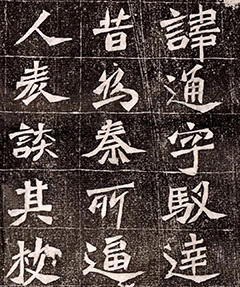 諱通字馭達
昔為秦所逼
人表談其枝